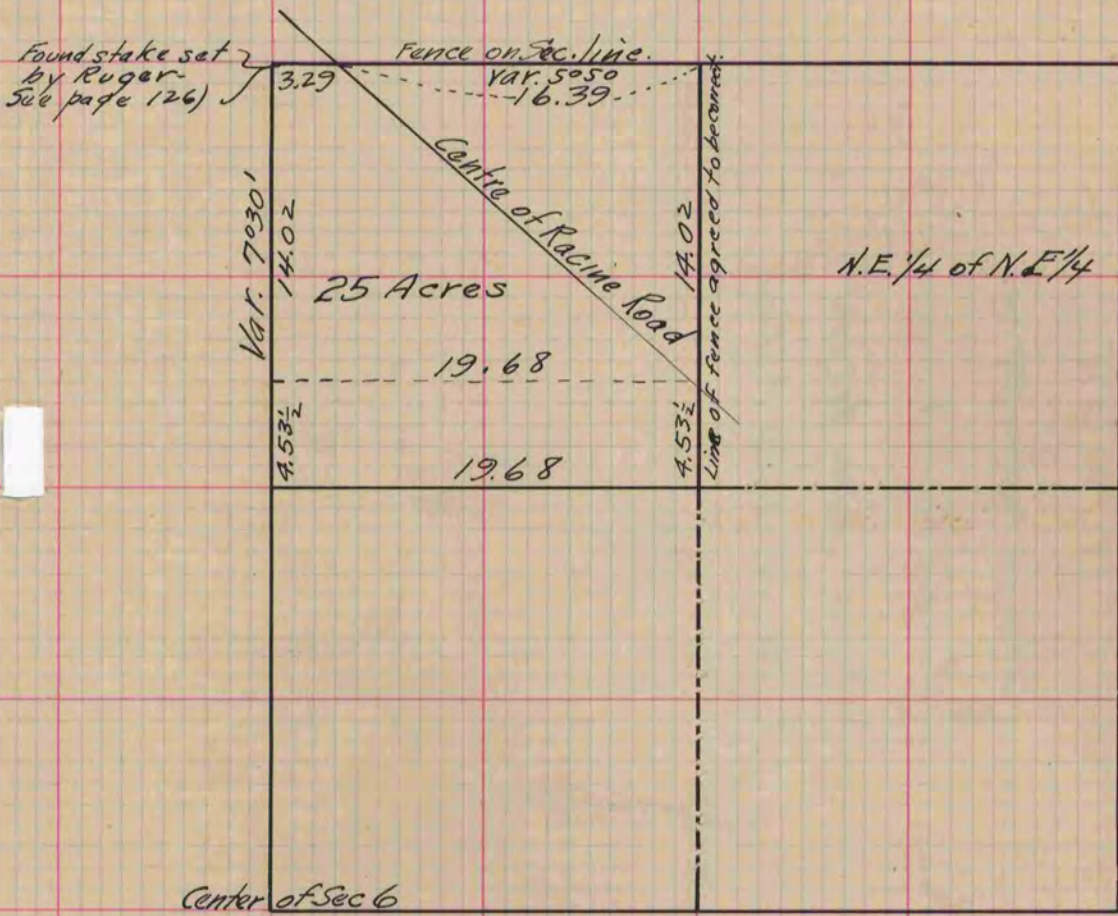 Found stake set
by Ruger-
See page 126)
Fence on Sec. line.
Var. 5°50
3.29
16.39
Centre of Racine Road
Var. 7°30'
14.02
14.02
Line of fence agreed to be correct.
N.E. 1/4 of N.E 1/4
25 Acres
19.68
4.53½
4.53½
19.68
Center of Sec 6